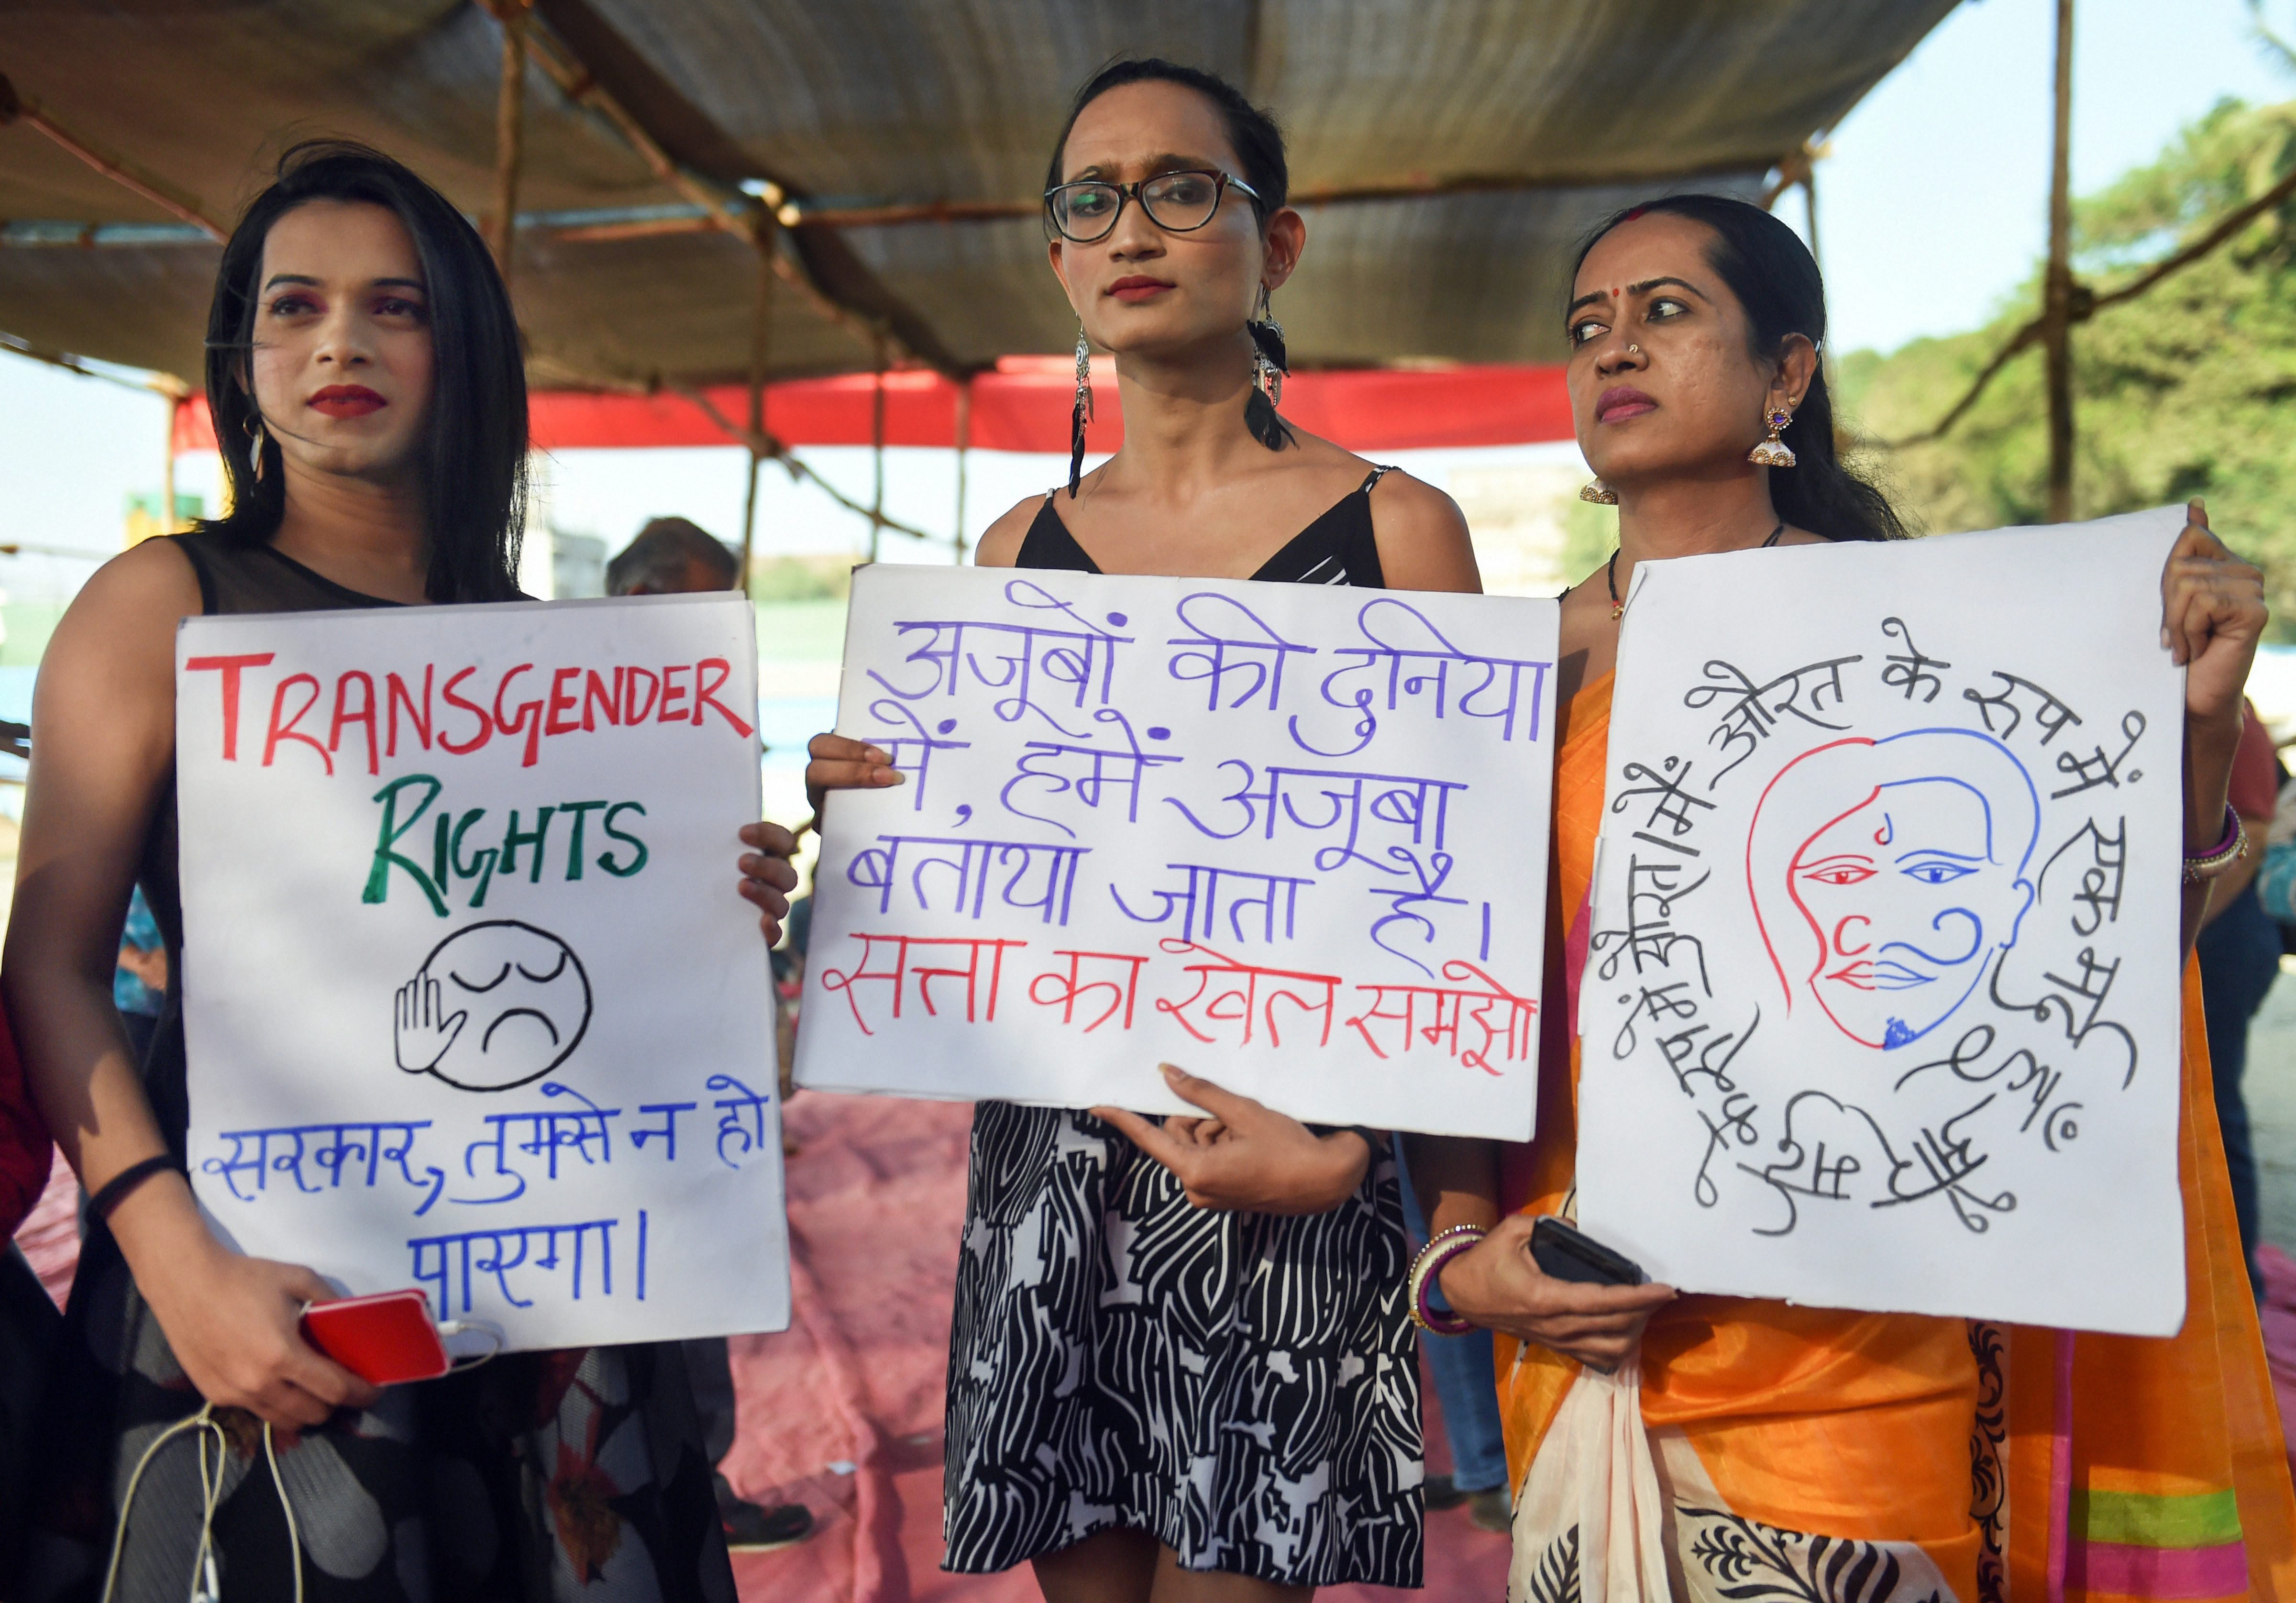 TRANSGENDER
RIGHTS
सरकार, तुमसे न हो
पाएगा।
अजूबों की दुनिया
में, हमें अजूबा
बताया जाता है।
सत्ता का खेल समझो
मैं औरत के रूप में एक मर्द हूँ / मर्द के रूप में औरत /